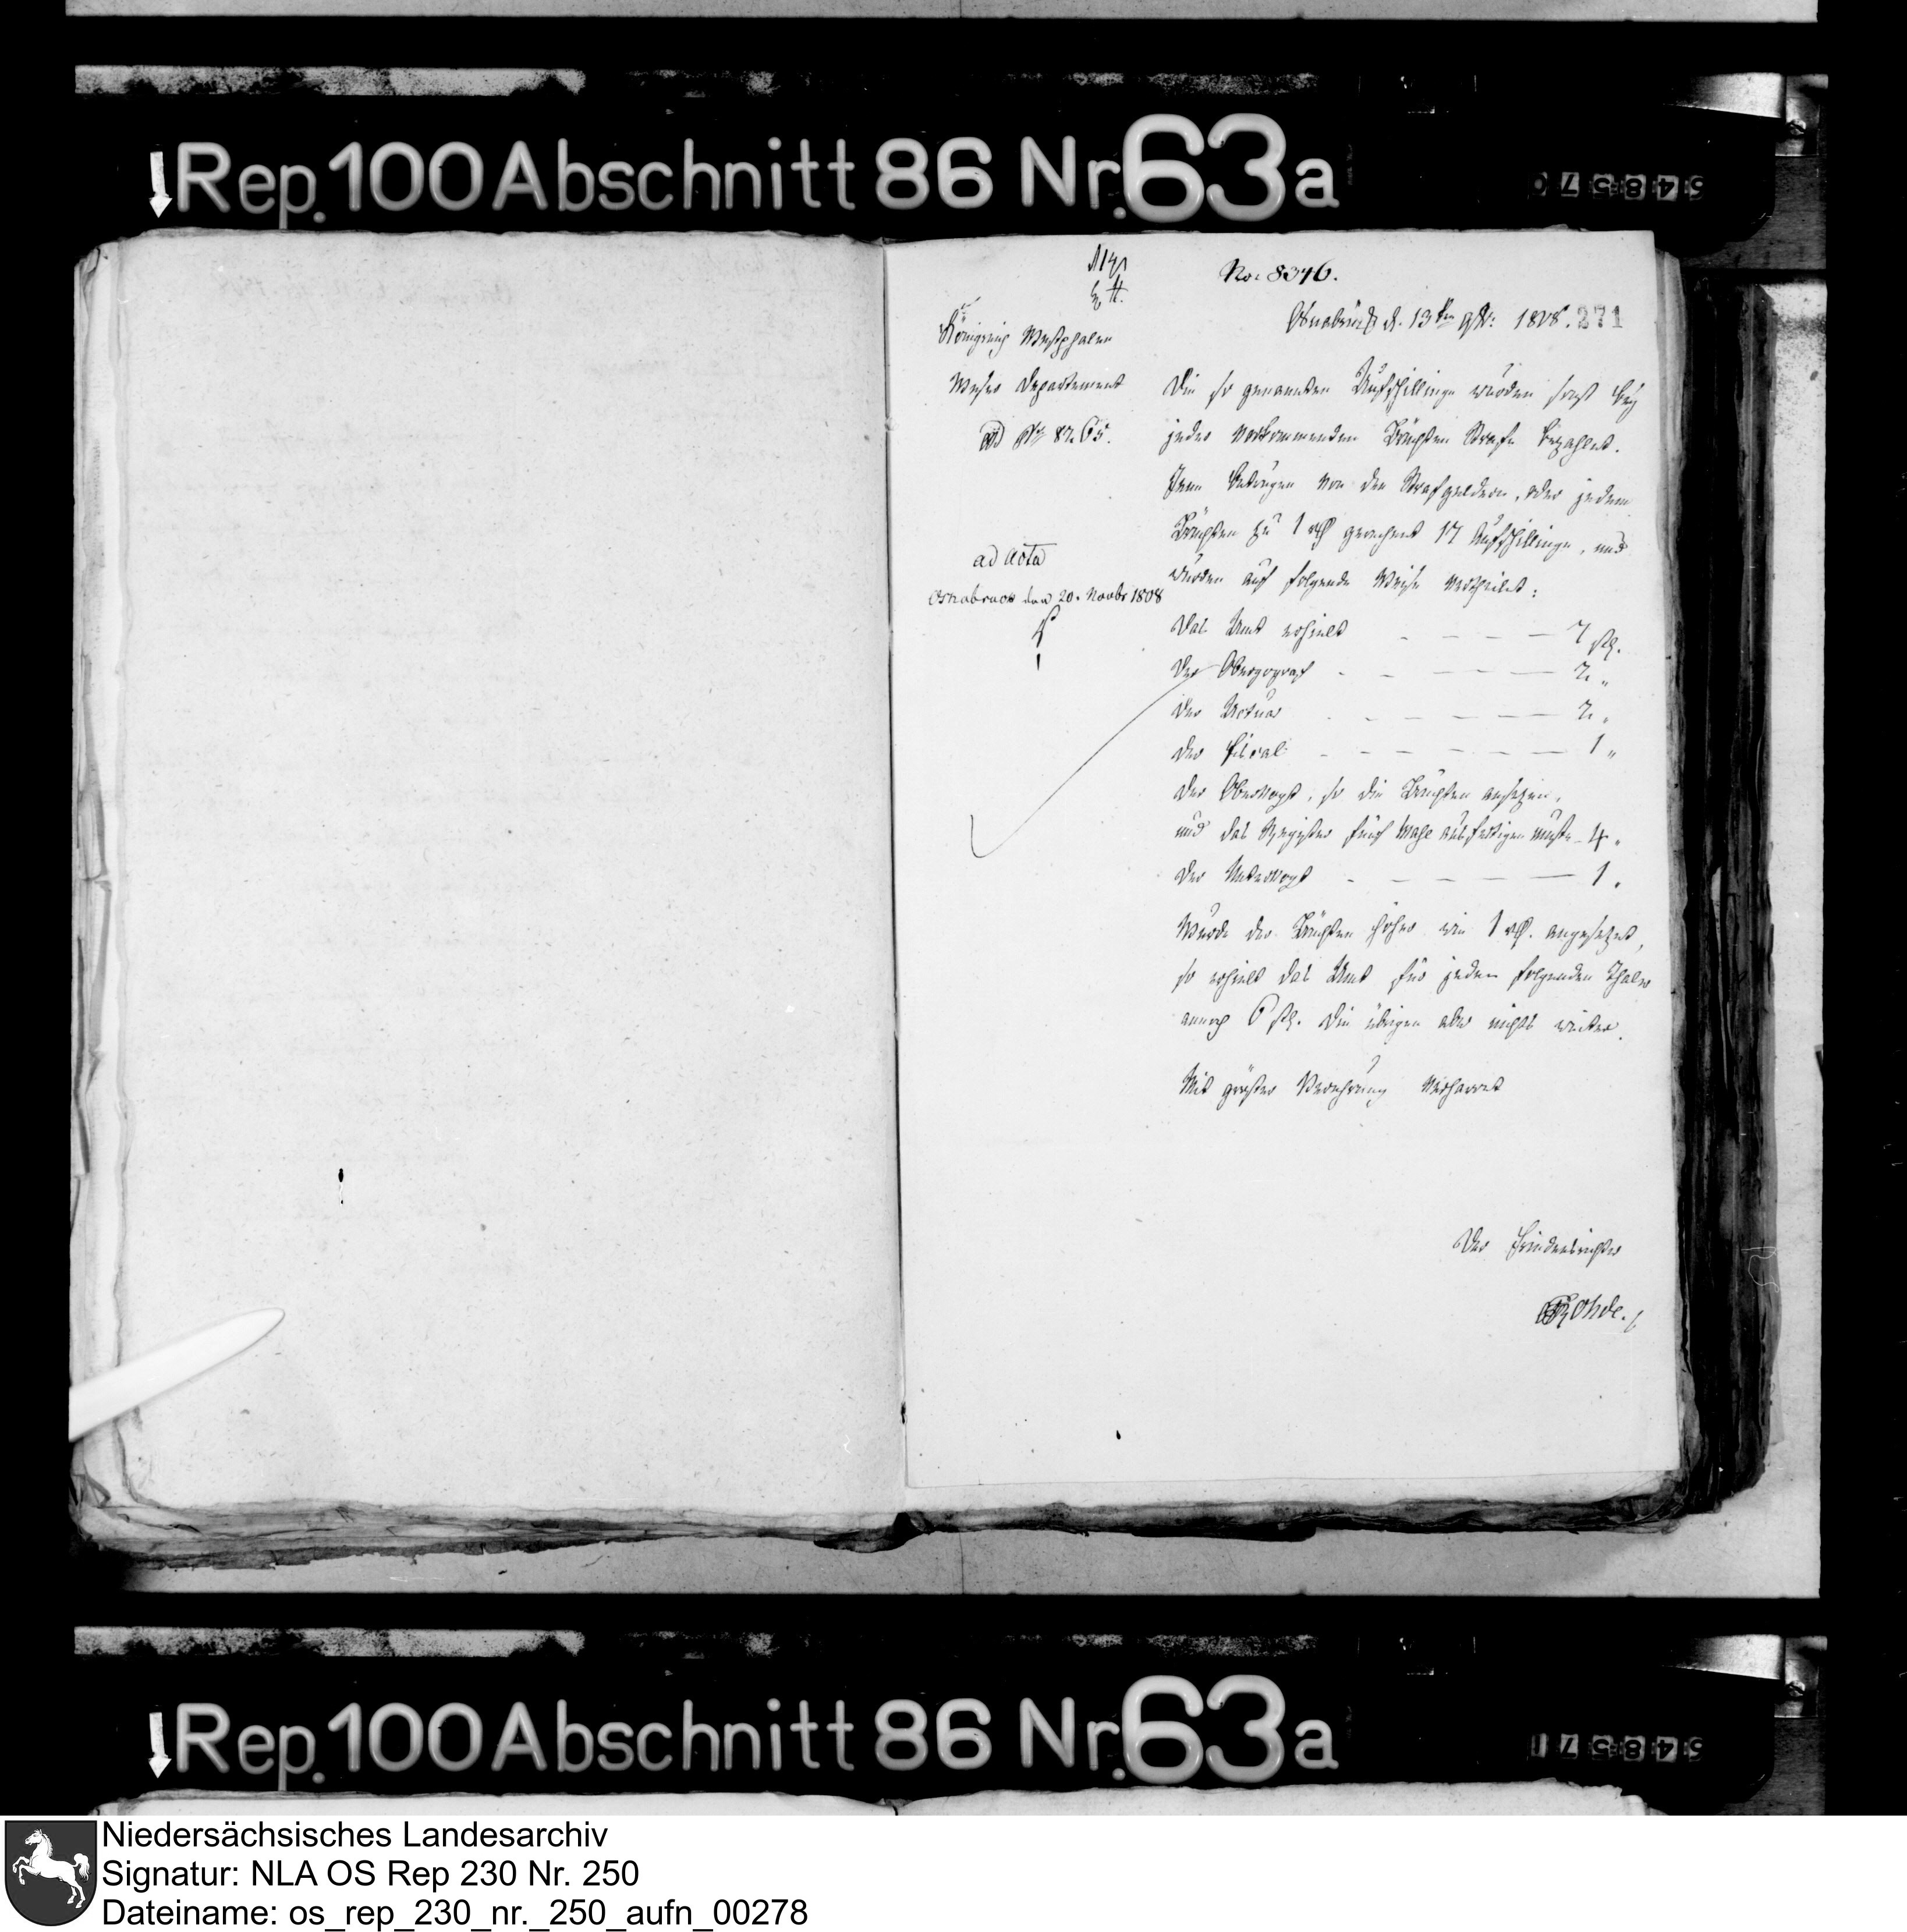 Rep. 100 Abschnitt 86 Nr. 63a
No: 8346.
Osnabrück d. 13ten 9br: 1808. 271
Königreich Westphalen
Weser Departement
ad No 8265.
ad acta
Osnabruck den 20. Novbr 1808
Die so genannten Aufschillinge wurden sonst bey
jeder vorkommenden Brüchten Strafe bezahlet.
Jene betrugen von den Strafgeldern, oder jedem
Brüchten zu 1 rth gerechnet 17 Aufschillinge, und
wurden auf folgende Weise vertheilet:
Das Amt erhielt - - - - 7 ßl.
Der Obergograf - - - - 2 "
Der Actuar - - - - 2 "
Der Fiscal - - - - 1 "
Der Obervogt, so die Brüchten ansetzen,
und das Register fünf Mahl ausfertigen muste - 4 "
Der Untervogt - - - - 1 "
Wurde der Brüchten höher wie 1 rth. angesetzet,
so erhielt das Amt für jeden folgenden Thaler
annoch 6 ßl. die übrigen aber nichts weiter.
Mit gröster Verehrung verharret
Der Friedensrichter
Rohde.
Rep. 100 Abschnitt 86 Nr. 63a
Niedersächsisches Landesarchiv
Signatur: NLA OS Rep 230 Nr. 250
Dateiname: os_rep_230_nr._250_aufn_00278